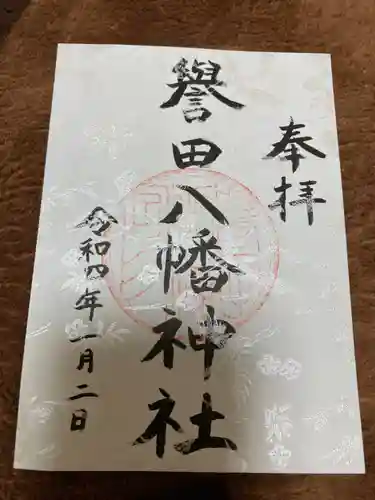 奉拝
譽田八幡神社
令和四年一月二日